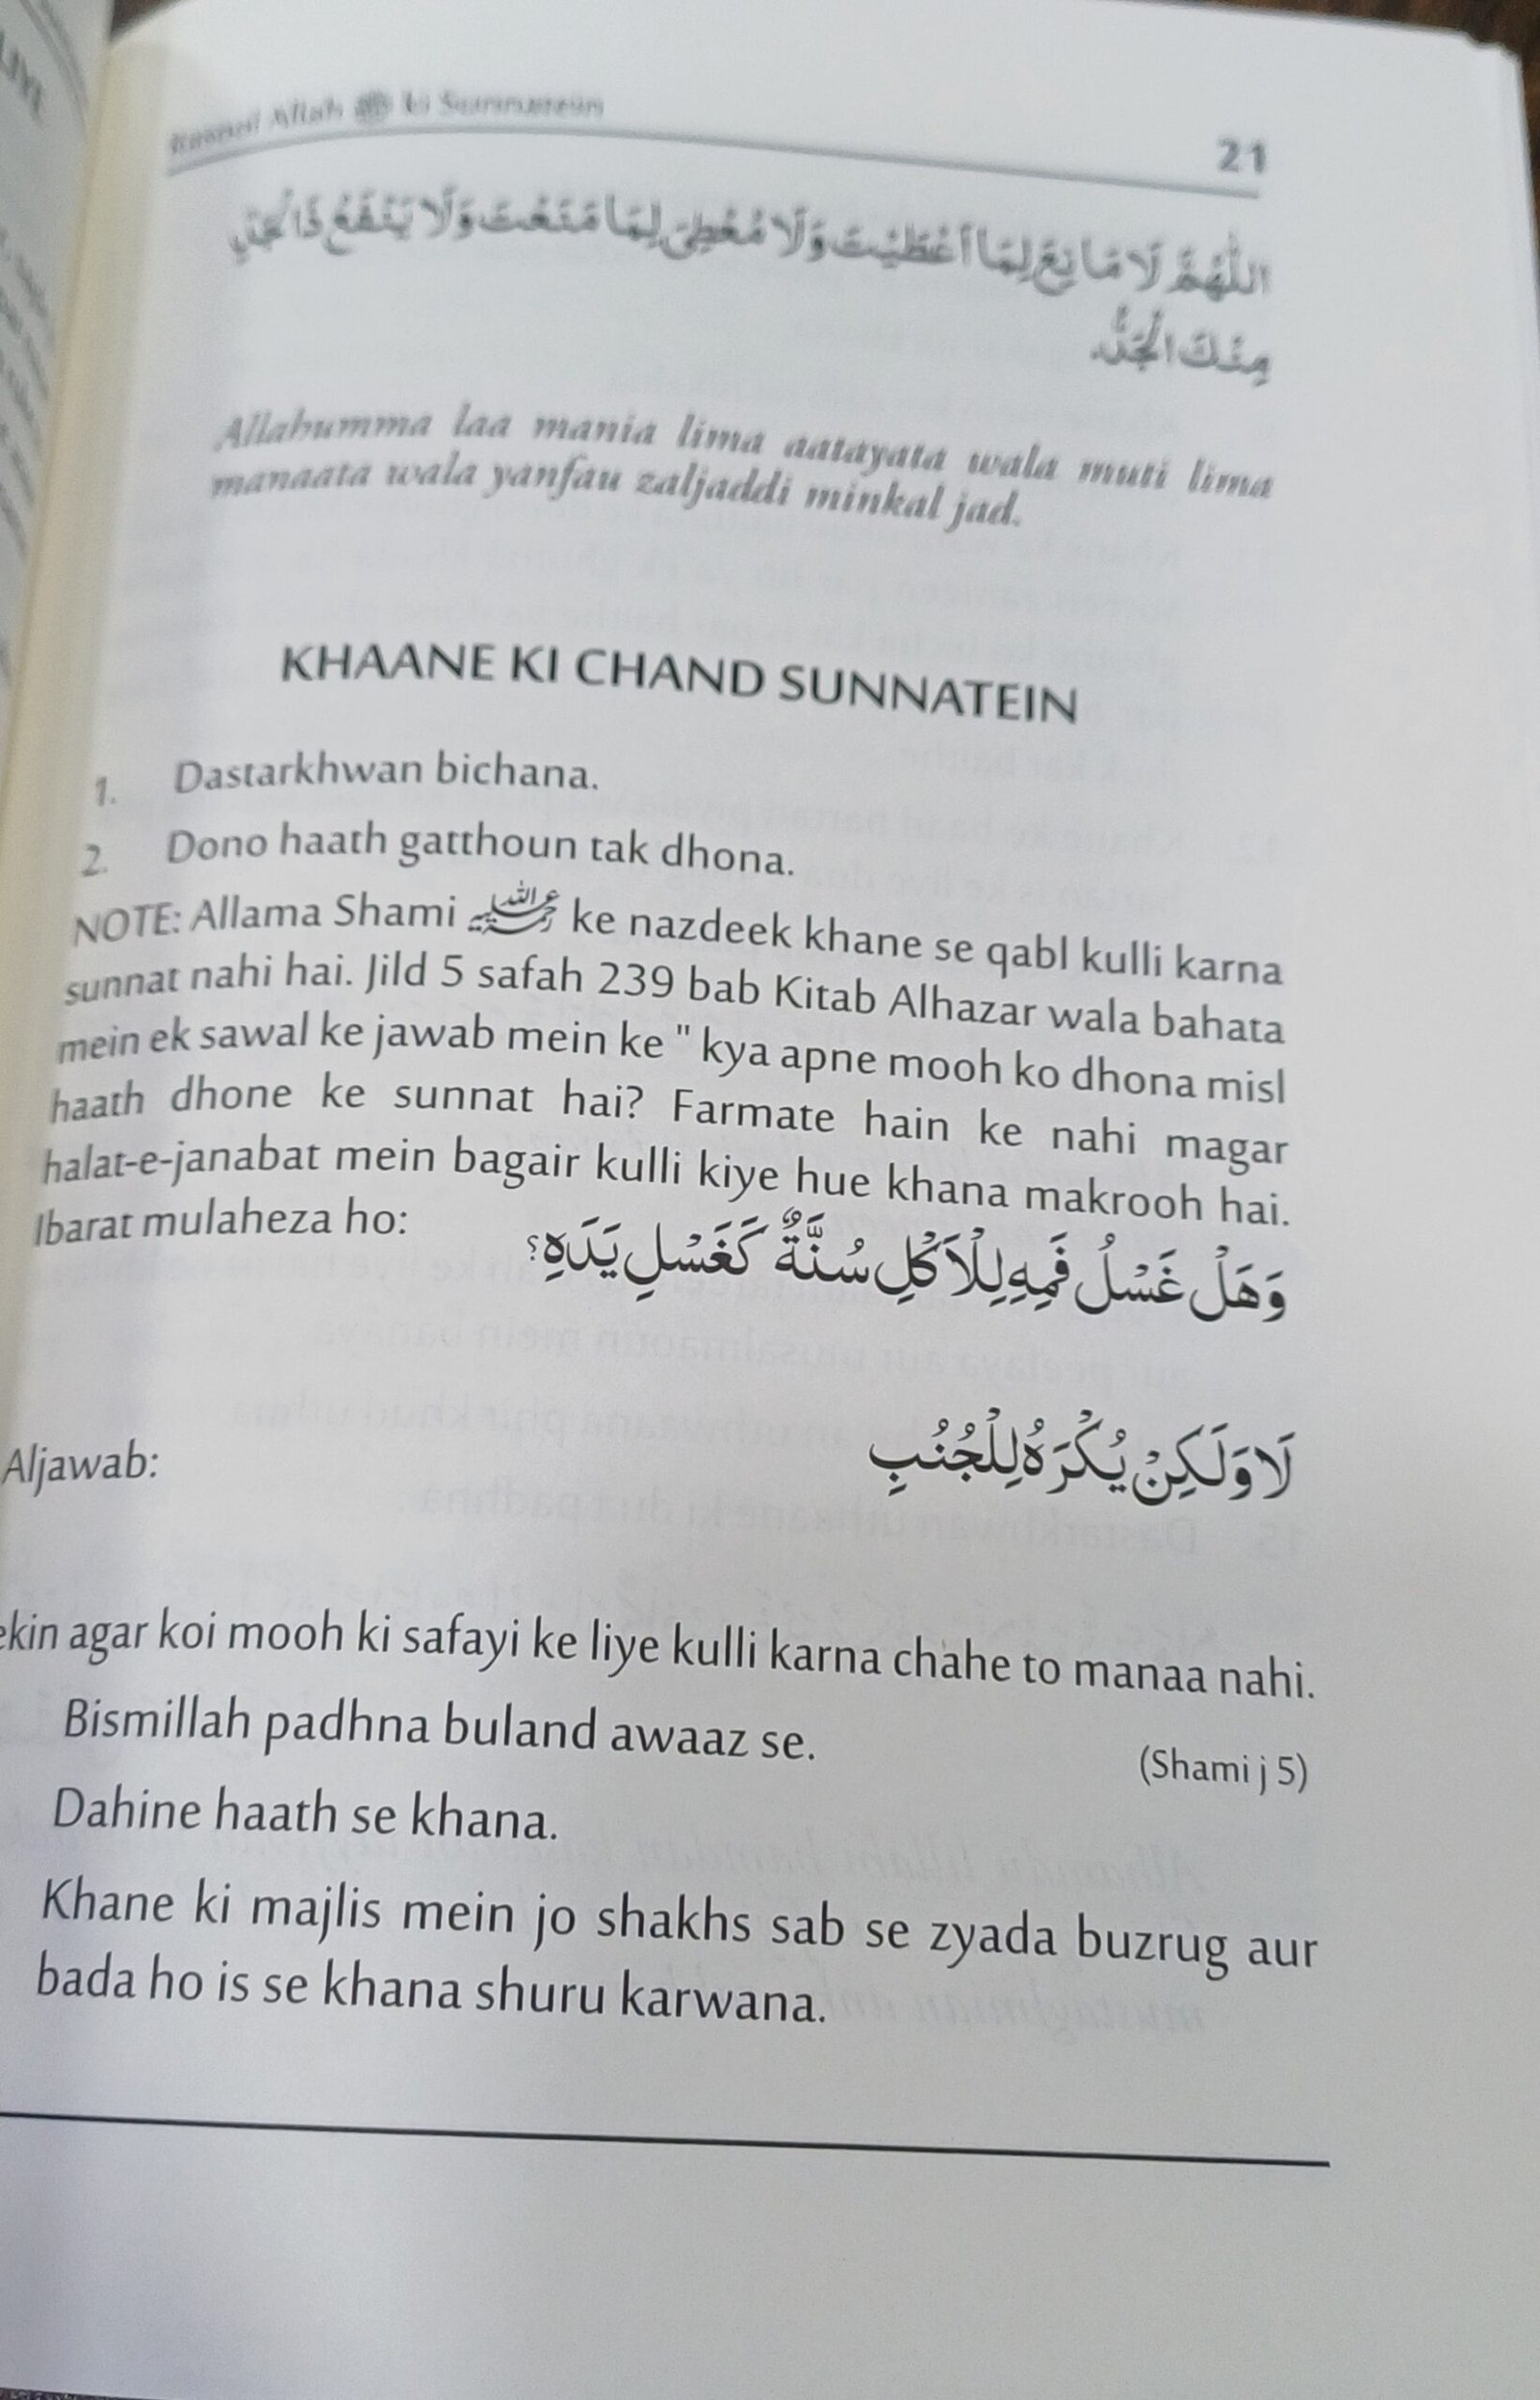 Rasool Allah ﷺ ki Sunnatein
21
اللّٰهُمَّ لَا مَانِعَ لِمَا اَعْطَيْتَ وَلَا مُعْطِيَ لِمَا مَنَعْتَ وَلَا يَنْفَعُ ذَا الْجَدِّ
مِنْكَ الْجَدُّ.
Allahumma laa mania lima aatayata wala muti lima
manaata wala yanfau zaljaddi minkal jad.
KHAANE KI CHAND SUNNATEIN
1. Dastarkhwan bichana.
2. Dono haath gatthoun tak dhona.
NOTE: Allama Shami رحمة الله عليه ke nazdeek khane se qabl kulli karna
sunnat nahi hai. Jild 5 safah 239 bab Kitab Alhazar wala bahata
mein ek sawal ke jawab mein ke " kya apne mooh ko dhona misl
haath dhone ke sunnat hai? Farmate hain ke nahi magar
halat-e-janabat mein bagair kulli kiye hue khana makrooh hai.
Ibarat mulaheza ho:
وَهَلْ غَسْلُ فَمِهٖ لِلْاَكْلِ سُنَّةٌ كَغَسْلِ يَدَهٖ؟
Aljawab:
لَا وَلَكِنْ يُكْرَهُ لِلْجُنُبِ
ekin agar koi mooh ki safayi ke liye kulli karna chahe to manaa nahi.
Bismillah padhna buland awaaz se.
(Shami j 5)
Dahine haath se khana.
Khane ki majlis mein jo shakhs sab se zyada buzrug aur
bada ho is se khana shuru karwana.